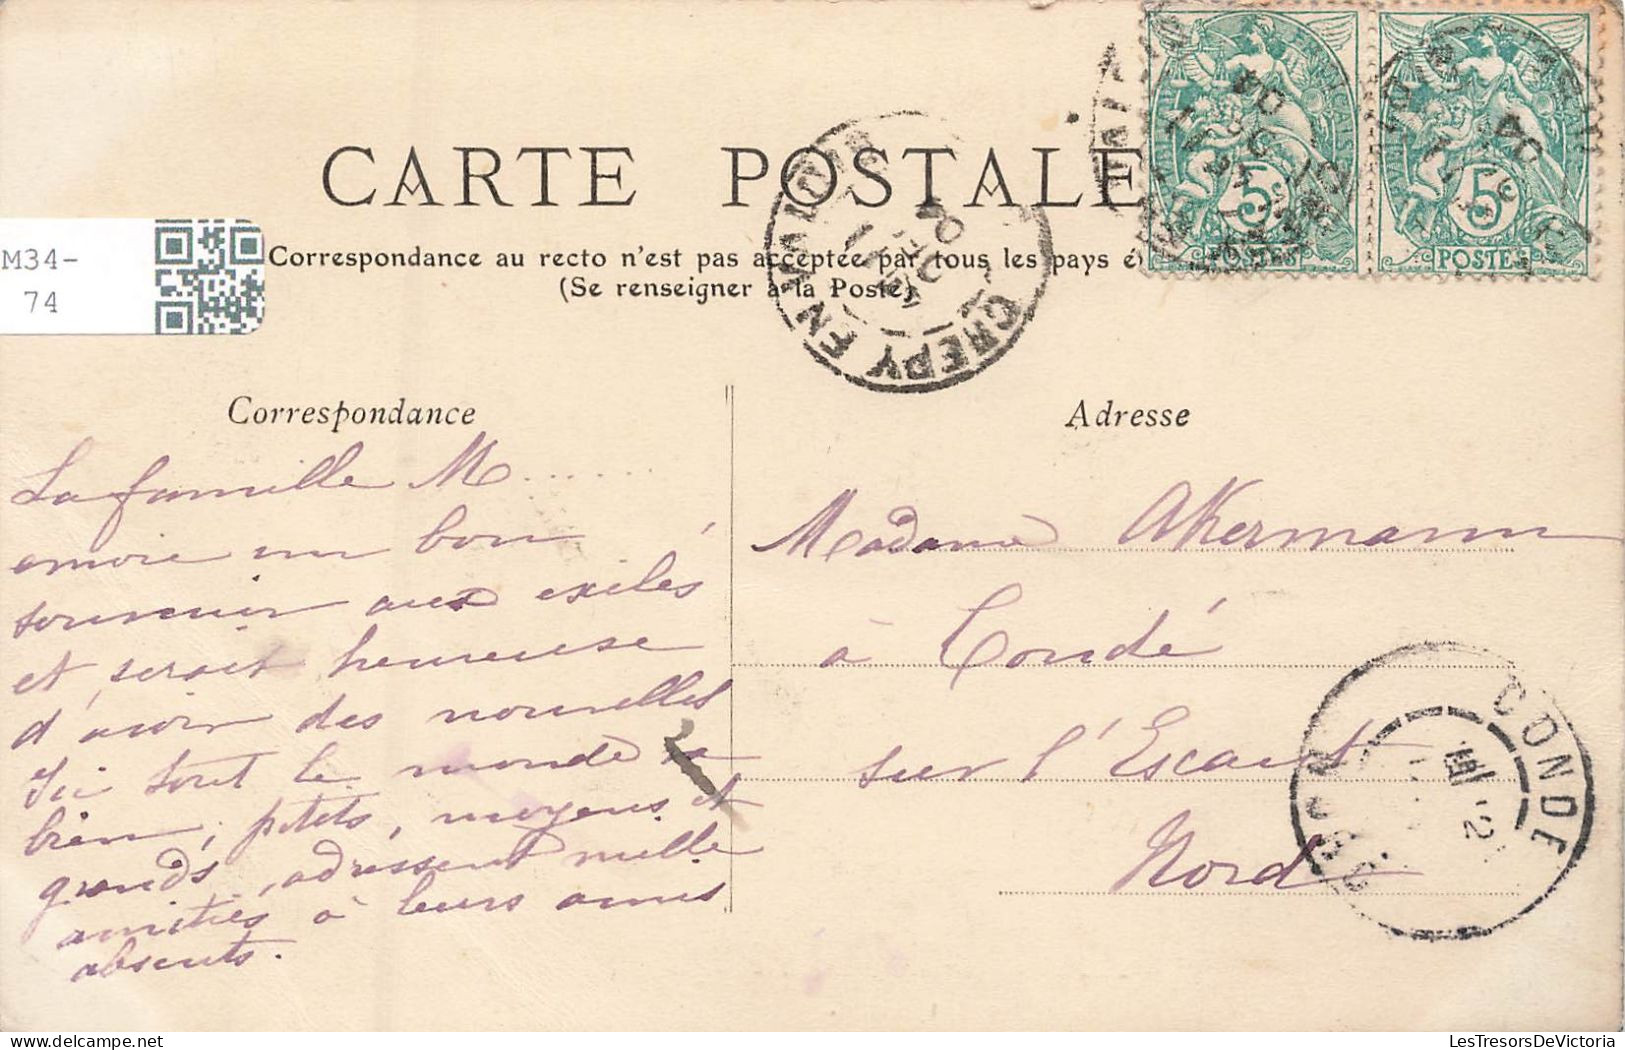 CARTE POSTALE
M34-
74
Correspondance au recto n'est pas acceptée par tous les pays é
(Se renseigner à la Poste)
CREPY EN VALOIS
POSTES
5
POSTES
5
Correspondance
La famille M......
envoie un bon
souvenir aux exilés
et serait heureuse
d'avoir des nouvelles
Ici tout le monde va
bien, petits, moyens et
grands, adressent mille
amitiés à leurs amis
absents.
Adresse
Madame Akermann
à Condé
sur l'Escaut
Nord
CONDE
LesTresorsDeVictoria